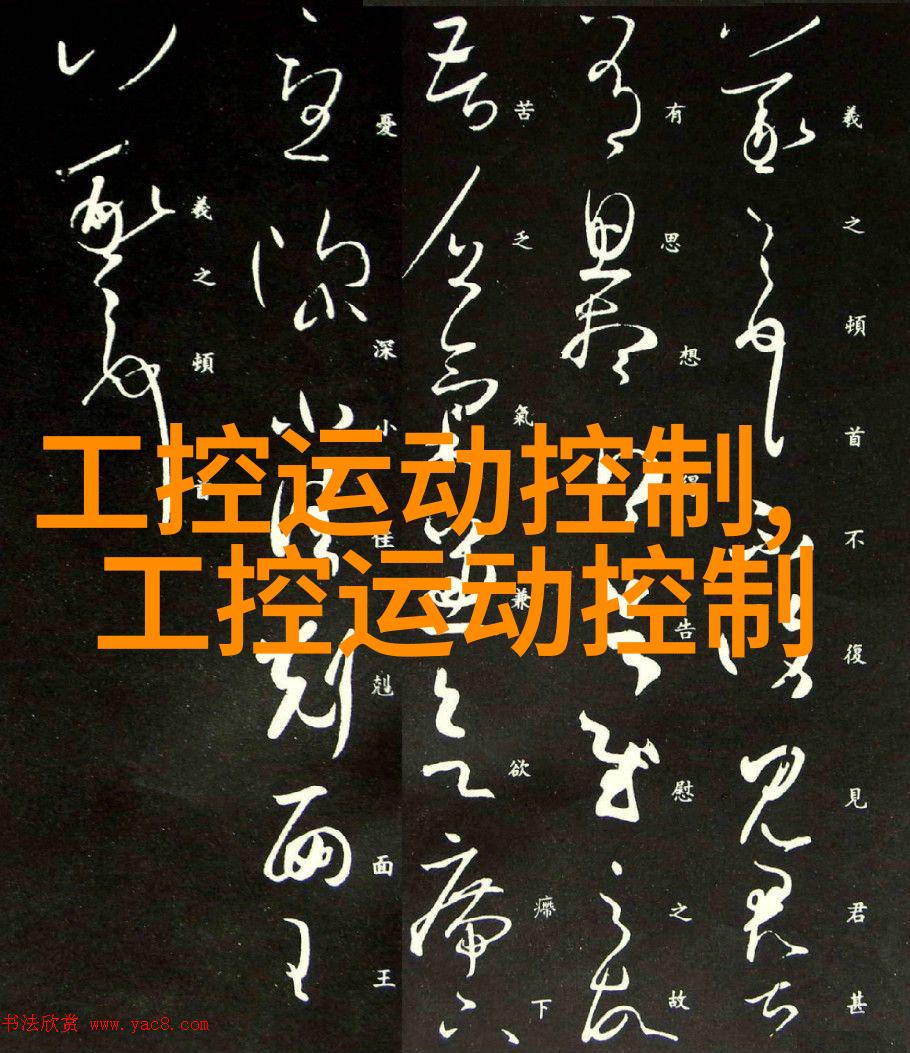 工控运动控制,
工控运动控制
羲之頓首不復見君甚
有思想得告慰之故
苦乏氣兼欲㿃下
憂深小佳剋面王
羲之頓首
书法欣赏 www.yac8.com